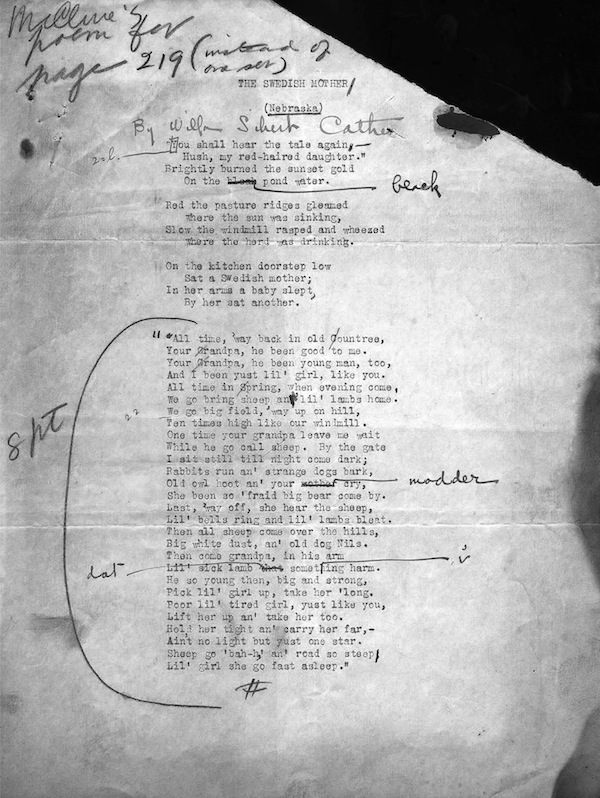 McClure's
poem for
page 219 (instead of
THE SWEDISH MOTHER
(Nebraska)
By Willa Sibert Cather
"You shall hear the tale again,—
Hush, my red-haired daughter."
Brightly burned the sunset gold
On the black pond water. black
Red the pasture ridges gleamed
Where the sun was sinking,
Slow the windmill rasped and wheezed
Where the herd was drinking.
On the kitchen doorstep low
Sat a Swedish mother;
In her arms a baby slept,
By her sat another.
"All time, 'way back in old Countree,
Your Grandpa, he been good to me.
Your Grandpa, he been young man, too,
And I been yust lil' girl, like you.
All time in Spring, when evening come,
We go bring sheep an' lil' lambs home.
We go big field, 'way up on hill,
Ten times high like our windmill.
One time your grandpa leave me wait
While he go call sheep. By the gate
8 pt
I sit still till night come dark;
Rabbits run an' strange dogs bark,
Old owl hoot an' your mother cry, modder
She been so 'fraid big bear come by.
Last, 'way off, she hear the sheep,
Lil' bells ring and lil' lambs bleat.
Then all sheep come over the hills,
Big white dust, an' old dog Nils.
Then come grandpa, in his arm
dat Lil' sick lamb that something harm.
He so young then, big and strong,
Pick lil' girl up, take her 'long.
Poor lil' tired girl, yust like you,
Lift her up an' take her too.
Hold her tight an' carry her far,-
Ain't no light but yust one star.
Sheep go 'bah-h,' an' road so steep,
Lil' girl she go fast asleep."
#